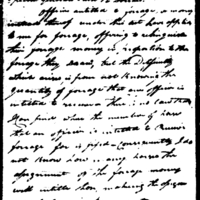 officers entitled to forage, a money
instead thereof under this act have applied
to me for forage, offering to relinquish
their forage money in proportion to the
forage they draw, but the Difficulty
which arises is from not knowing the
Quantity of forage that an officer is
entitled to receive there is no
when the number of horses
that an officer is entitled to Receive
forage for is fixed consequently I do
not know how many horses the
assignment of the forage money
will entitle him, making the